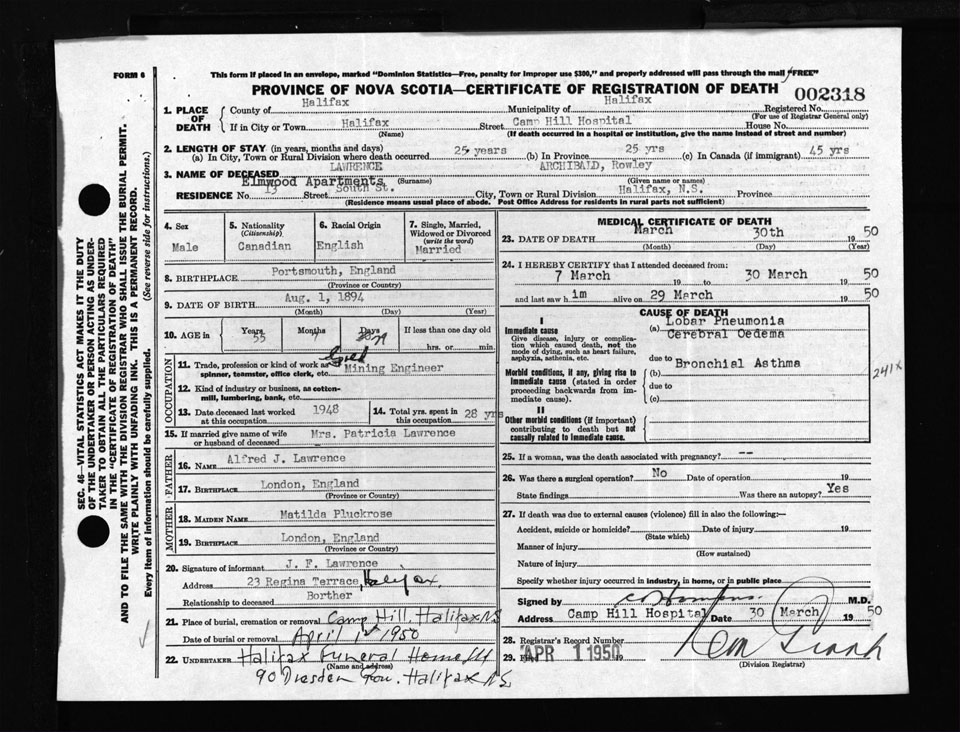 FORM 6
This form if placed in an envelope, marked "Dominion Statistics—Free, penalty for improper use $300," and properly addressed will pass through the mail "FREE"
PROVINCE OF NOVA SCOTIA—CERTIFICATE OF REGISTRATION OF DEATH
002318
1. PLACE OF DEATH
County of Halifax Municipality of Halifax Registered No.
(For use of Registrar General only)
If in City or Town Halifax Street Camp Hill Hospital House No.
(Name) (If death occurred in a hospital or institution, give the name instead of street and number)
2. LENGTH OF STAY (in years, months and days)
(a) In City, Town or Rural Division where death occurred 25 years (b) In Province 25 yrs (c) In Canada (if immigrant) 45 yrs
3. NAME OF DECEASED LAWRENCE ARCHIBALD, Rowley
(Surname) (Given name or names)
Elmwood Apartments
RESIDENCE No. 13 Street South St. City, Town or Rural Division Halifax, N.S. Province
(Residence means usual place of abode. Post Office Address for residents in rural parts not sufficient)
4. Sex
Male
5. Nationality
(Citizenship)
Canadian
6. Racial Origin
English
7. Single, Married, Widowed or Divorced
(write the word)
Married
8. BIRTHPLACE Portsmouth, England
(Province or Country)
9. DATE OF BIRTH Aug. 1, 1894
(Month) (Day) (Year)
10. AGE in Years 55 Months 7 Days 29 If less than one day old
hrs. or min.
OCCUPATION
11. Trade, profession or kind of work as spinner, teamster, office clerk, etc. Gold Mining Engineer
12. Kind of industry or business, as cotton-mill, lumbering, bank, etc.
13. Date deceased last worked at this occupation 1948
14. Total yrs. spent in this occupation 28 yrs
15. If married give name of wife or husband of deceased Mrs. Patricia Lawrence
FATHER
16. NAME Alfred J. Lawrence
17. BIRTHPLACE London, England
(Province or Country)
MOTHER
18. MAIDEN NAME Matilda Pluckrose
19. BIRTHPLACE London, England
(Province or Country)
20. Signature of informant J. F. Lawrence
Address 23 Regina Terrace, Halifax.
Relationship to deceased Borther
21. Place of burial, cremation or removal Camp Hill, Halifax NS
Date of burial or removal April 1st 1950
22. UNDERTAKER Halifax Funeral Home
(Name and address)
90 Dresden Row. Halifax NS
MEDICAL CERTIFICATE OF DEATH
23. DATE OF DEATH March 30th 1950
(Month) (Day) (Year)
24. I HEREBY CERTIFY that I attended deceased from:
7 March 19 to 30 March 1950
and last saw him alive on 29 March 1950
CAUSE OF DEATH
I
Immediate cause
Give disease, injury or complication which caused death, not the mode of dying, such as heart failure, asphyxia, asthenia, etc.
(a) Lobar Pneumonia
Cerebral Oedema
due to
Morbid conditions, if any, giving rise to immediate cause (stated in order proceeding backwards from immediate cause).
(b) Bronchial Asthma
due to
(c)
241x
II
Other morbid conditions (if important) contributing to death but not causally related to immediate cause.
25. If a woman, was the death associated with pregnancy? --
26. Was there a surgical operation? No Date of operation 19
State findings Was there an autopsy? Yes
27. If death was due to external causes (violence) fill in also the following:—
Accident, suicide or homicide? Date of injury 19
(State which)
Manner of injury
(How sustained)
Nature of injury
Specify whether injury occurred in industry, in home, or in public place
Signed by M.D.
Address Camp Hill Hospital Date 30 March 1950
28. Registrar's Record Number
29. APR 1 1950 19
(Division Registrar)
SEC. 46—VITAL STATISTICS ACT MAKES IT THE DUTY
OF THE UNDERTAKER OR PERSON ACTING AS UNDER-
TAKER TO OBTAIN ALL THE PARTICULARS REQUIRED
IN THE "CERTIFICATE OF REGISTRATION OF DEATH"
AND TO FILE THE SAME WITH THE DIVISION REGISTRAR WHO SHALL ISSUE THE BURIAL PERMIT.
WRITE PLAINLY WITH UNFADING INK. THIS IS A PERMANENT RECORD.
Every item of information should be carefully supplied. (See reverse side for instructions.)